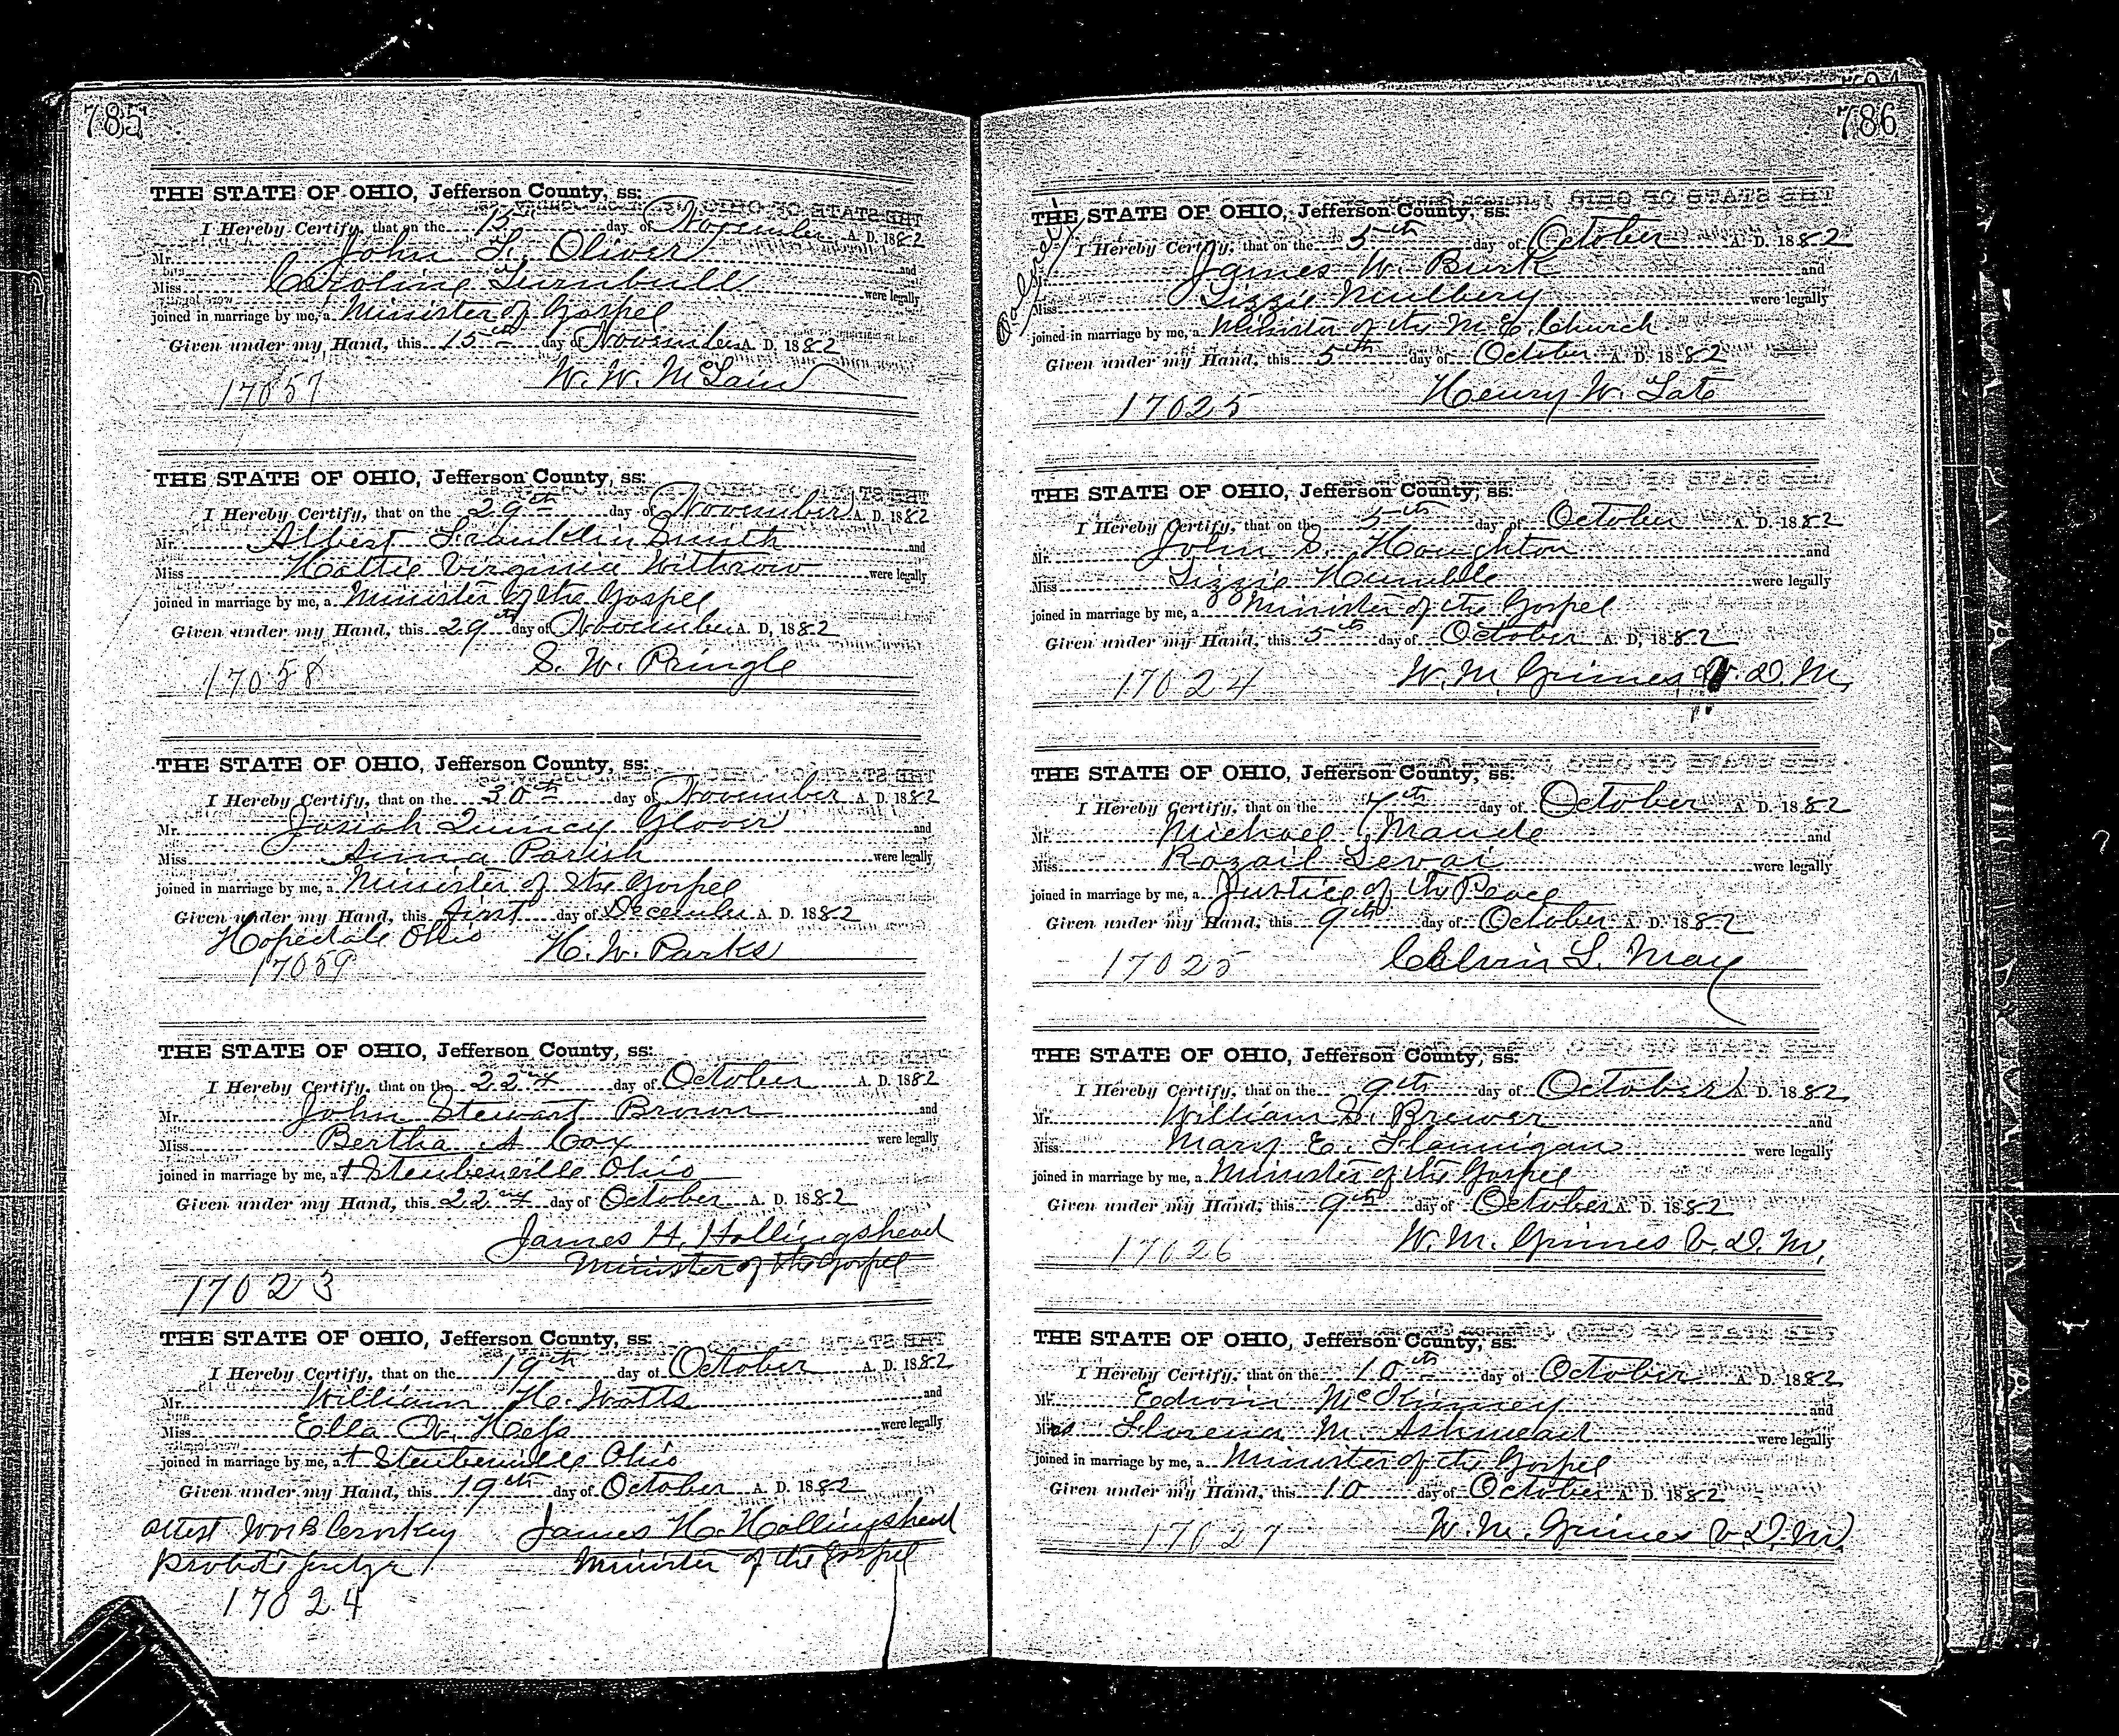 785
THE STATE OF OHIO, Jefferson County, ss:
I Hereby Certify, that on the 15th day of November A. D. 1882
Mr. John L. Oliver and
Miss Caroline Turnbull were legally
joined in marriage by me, a Minister of Gospel
Given under my Hand, this 15th day of November A. D. 1882
W. W. McLain
17057
THE STATE OF OHIO, Jefferson County, ss:
I Hereby Certify, that on the 29th day of November A. D. 1882
Mr. Albert Franklin Smith and
Miss Hattie Virginia Withrow were legally
joined in marriage by me, a Minister of the Gospel
Given under my Hand, this 29th day of November A. D, 1882
S. W. Pringle
17058
THE STATE OF OHIO, Jefferson County, ss:
I Hereby Certify, that on the 30th day of November A. D. 1882
Mr. Josiah Quincy Glover and
Miss Anna Parish were legally
joined in marriage by me, a Minister of the Gospel
Given under my Hand, this first day of December A. D. 1882
Hopedale Ohio H. W. Parks
17059
THE STATE OF OHIO, Jefferson County, ss:
I Hereby Certify, that on the 22nd day of October A. D. 1882
Mr. John Stewart Brown and
Miss Bertha A Cox were legally
joined in marriage by me, at Steubenville Ohio
Given under my Hand, this 22nd day of October A. D. 1882
James H. Hollingshead
Minister of the Gospel
17023
THE STATE OF OHIO, Jefferson County, ss:
I Hereby Certify, that on the 19th day of October A. D. 1882
Mr. William H. Watts and
Miss Ella V. Hess were legally
joined in marriage by me, at Steubenville Ohio
Given under my Hand, this 19th day of October A. D. 1882
attest James H. Hollingshead
Probate Judge Minister of the Gospel
17024
786
THE STATE OF OHIO, Jefferson County, ss:
I Hereby Certify, that on the 5th day of October A. D. 1882
Mr. James W. Burk and
Miss Lizzie Mulbery were legally
joined in marriage by me, a Minister of the M. E. Church
Given under my Hand, this 5th day of October A. D. 1882
Henry W. Tate
17025
THE STATE OF OHIO, Jefferson County, ss:
I Hereby Certify, that on the 5th day of October A. D. 1882
Mr. John S. Houghton and
Miss Lizzie Humble were legally
joined in marriage by me, a Minister of the Gospel
Given under my Hand, this 5th day of October A. D, 1882
W. M. Grimes V. D. M.
17024
THE STATE OF OHIO, Jefferson County, ss:
I Hereby Certify, that on the 7th day of October A. D. 1882
Mr. Michael Mande and
Miss Rozail Levai were legally
joined in marriage by me, a Justice of the Peace
Given under my Hand, this 9th day of October A. D. 1882
Calvin L. May
17025
THE STATE OF OHIO, Jefferson County, ss:
I Hereby Certify, that on the 9th day of October A. D. 1882
Mr. William S. Brewer and
Miss Mary E. Flannigan were legally
joined in marriage by me, a Minister of the Gospel
Given under my Hand, this 9th day of October A. D. 1882
W. M. Grimes V. D. M.
17026
THE STATE OF OHIO, Jefferson County, ss:
I Hereby Certify, that on the 10th day of October A. D. 1882
Mr. Edwin McKinney and
Mrs Florena M. Ashmead were legally
joined in marriage by me, a Minister of the Gospel
Given under my Hand, this 10 day of October A. D. 1882
W. M. Grimes V. D. M.
17027